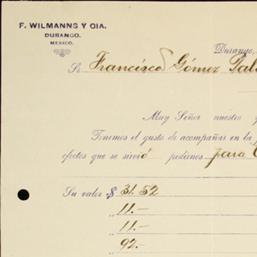 F. WILMANNS Y CIA.
DURANGO.
MEXICO.
Durango,
Sr Francisco Gómez Pal
Muy Señor nuestro
Tenemos el gusto de acompañar en la
efectos que se sirvió pedirnos para
Su valor $ 31.52
11.-
11.-
92.-